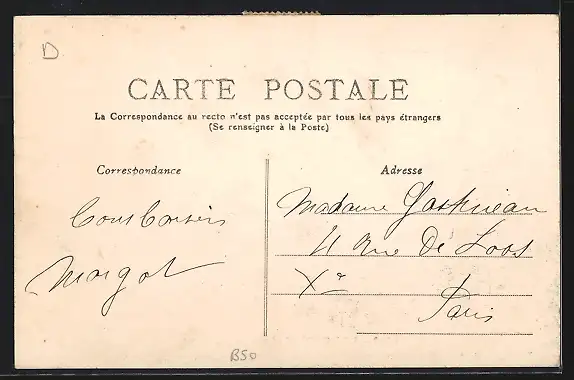 D
CARTE POSTALE
La Correspondance au recto n'est pas acceptée par tous les pays étrangers
(Se renseigner à la Poste)
Correspondance
Adresse
Madame
Rue De Loos
Margot
Xe
Paris
B50